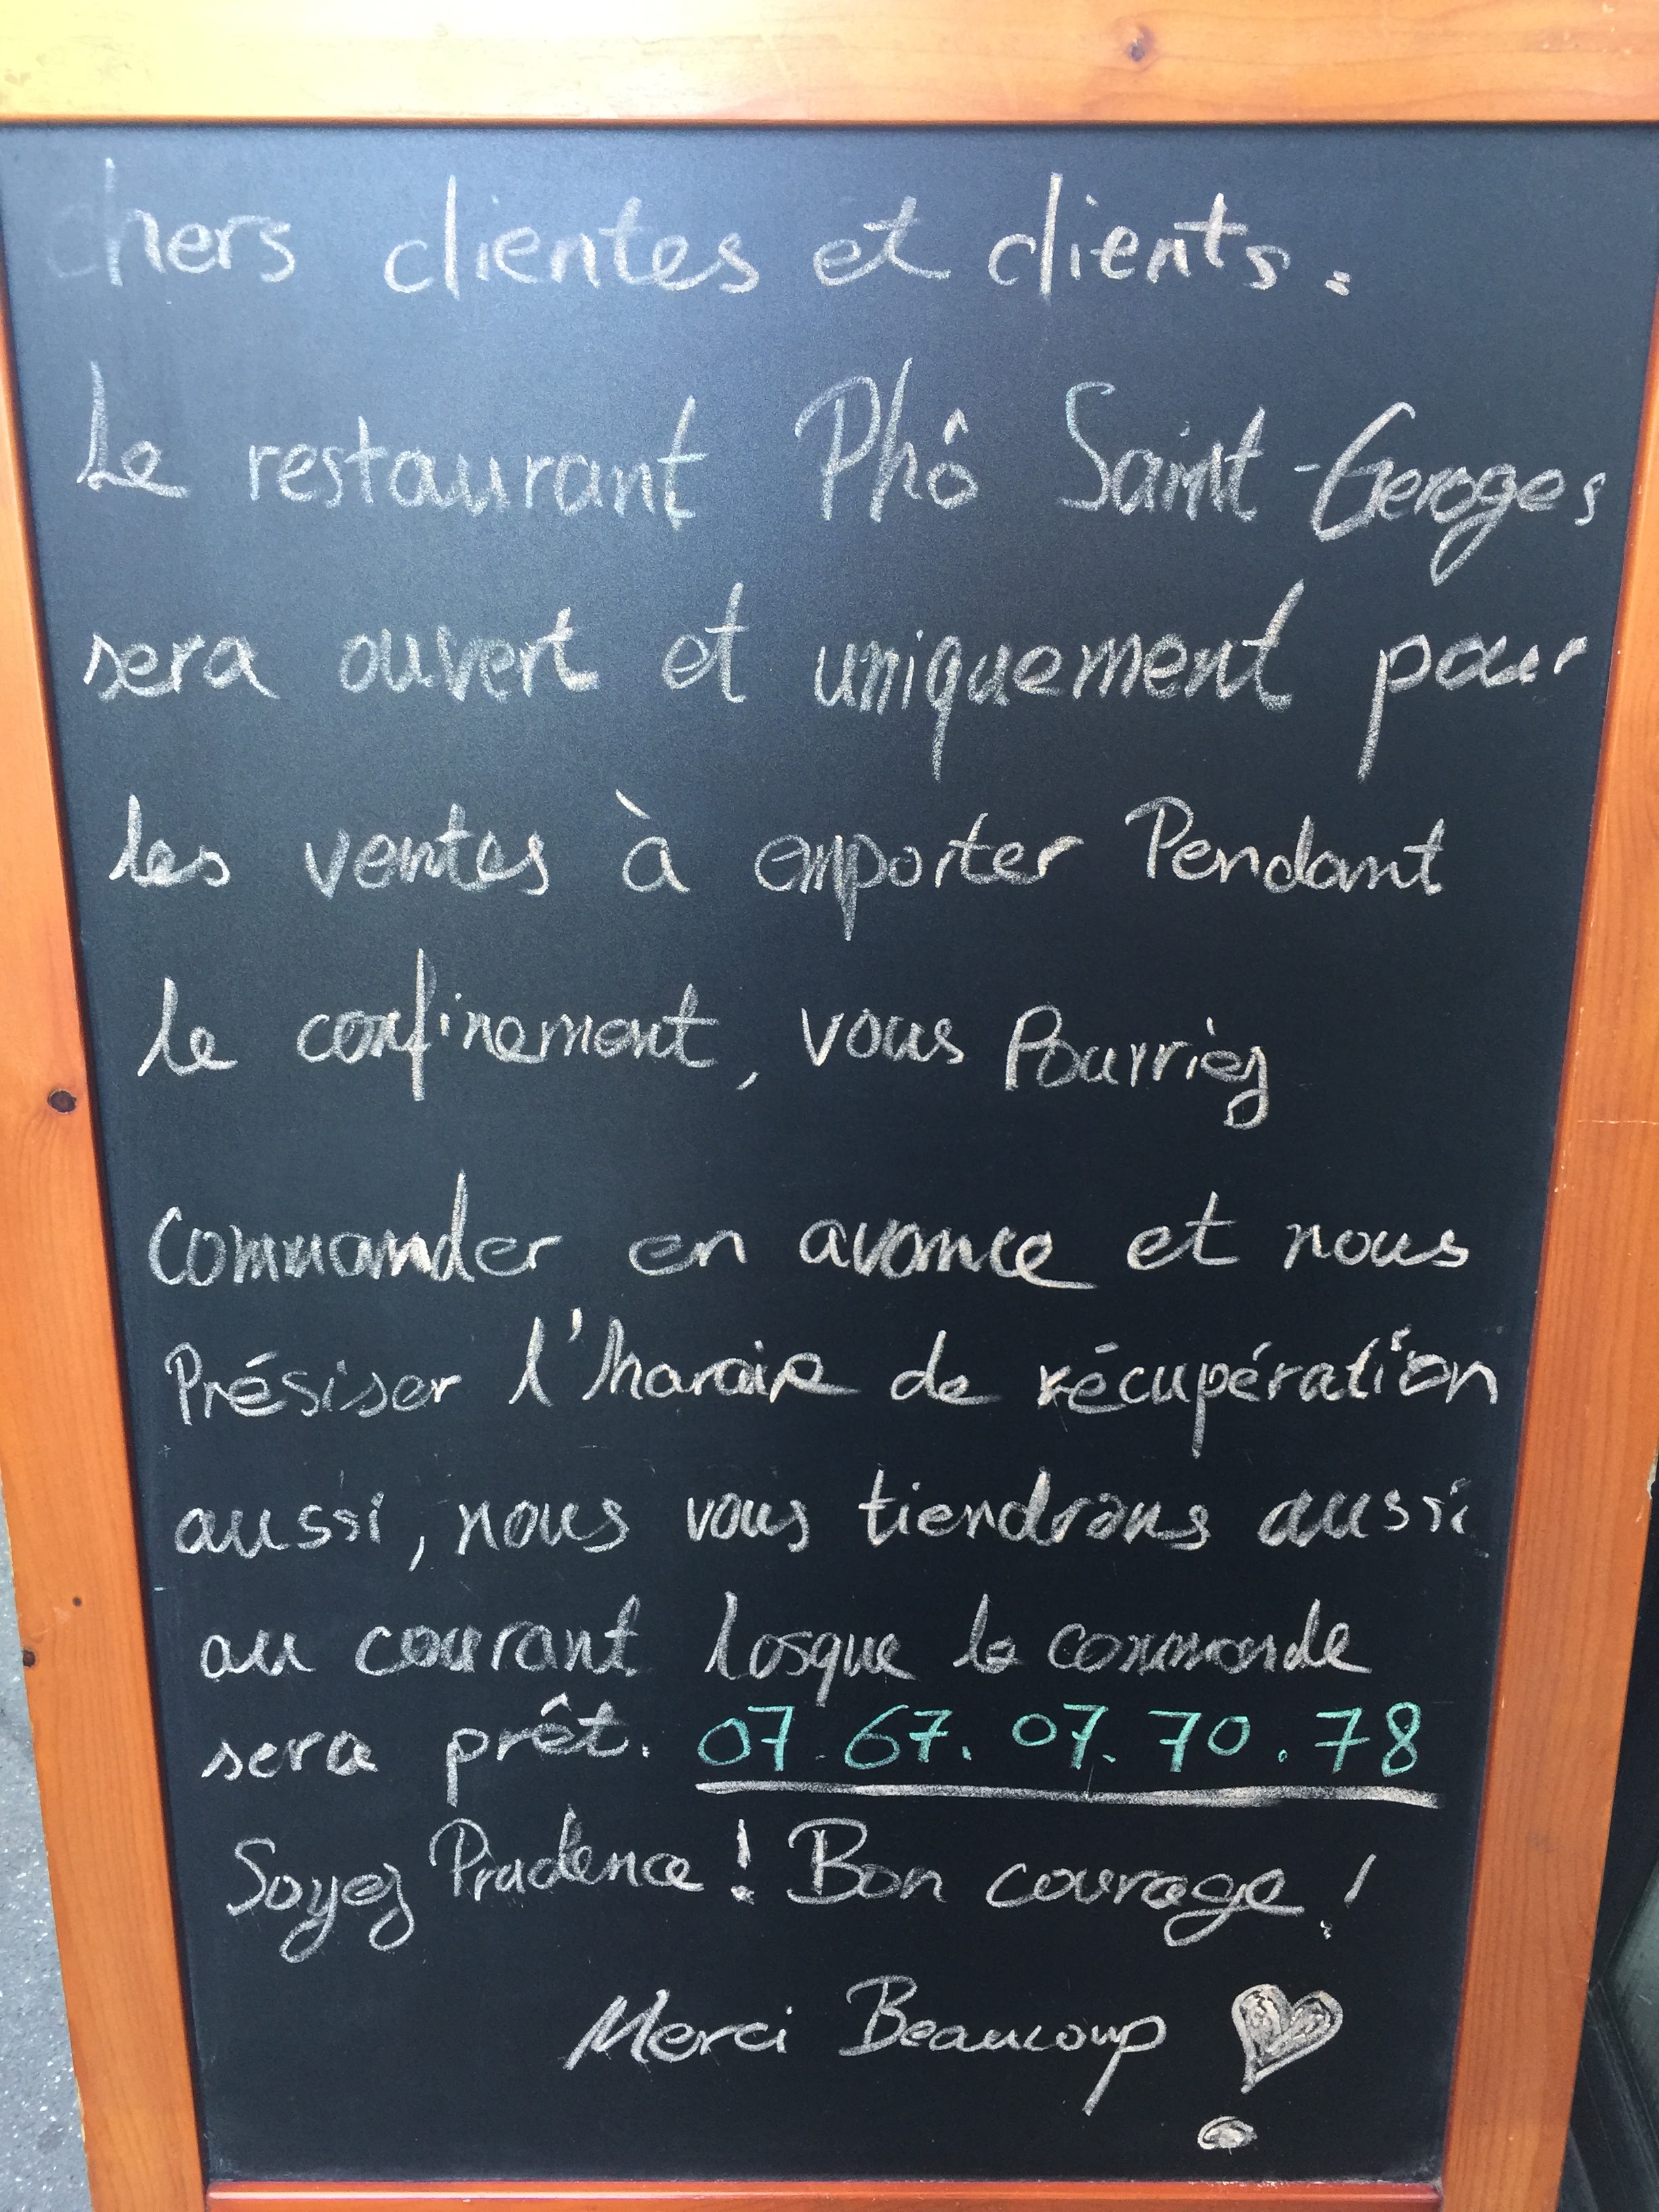 chers clientes et clients.
Le restaurant Phô Saint-Geroges
sera ouvert et uniquement pour
les ventes à emporter Pendant
le confinement, vous Pourriez
Commander en avance et nous
Présiser l'horaire de récupération
aussi, nous vous tiendrons aussi
au courant losque la commande
sera prêt. 07.67.07.70.78
Soyez Prudence! Bon courage!
Merci Beaucoup